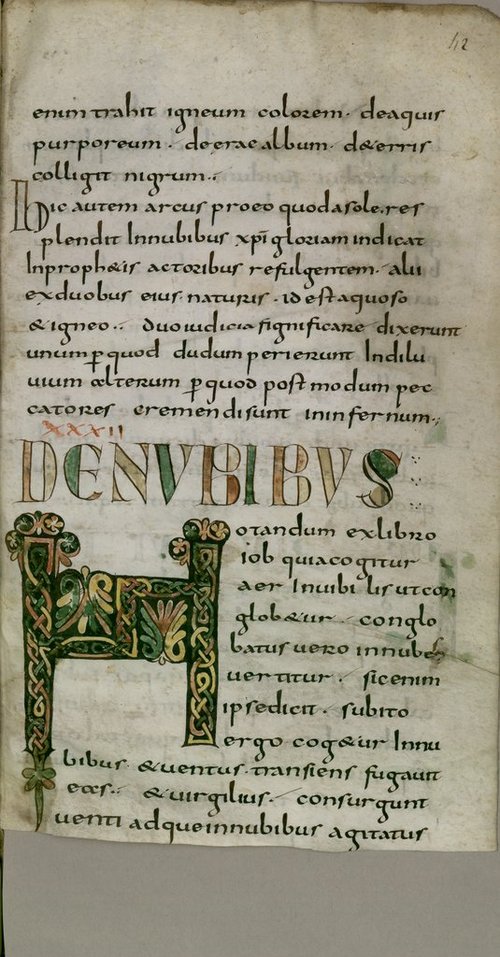 42
enim trahit igneum colorem· deaquis
purporeum· deerae album· de&erris
colligit nigrum·
hic autem arcus proeo quodasole res
plendit Innubibus xpi gloriam indicat
Inproph&is actoribus refulgentem· alii
exduobus eius naturis· id est aquoso
& igneo· duo iudicia significare dixerunt
unum p quod dudum perierunt Indilu
uium alterum p quod post modum pec
catores cremendi sunt in infernum·
XXXII
DENUBIBUS
Notandum exlibro
iob quia cogitur
aer Inuibilis ut con
glob&ur· conglo
batus uero innubes
uertitur· sic enim
ipse dicit· subito
ergo cog&ur Innu
bibus· & uentus transiens fugauit
eas· & uirgilius· consurgunt
uenti adque innubibus agitatus